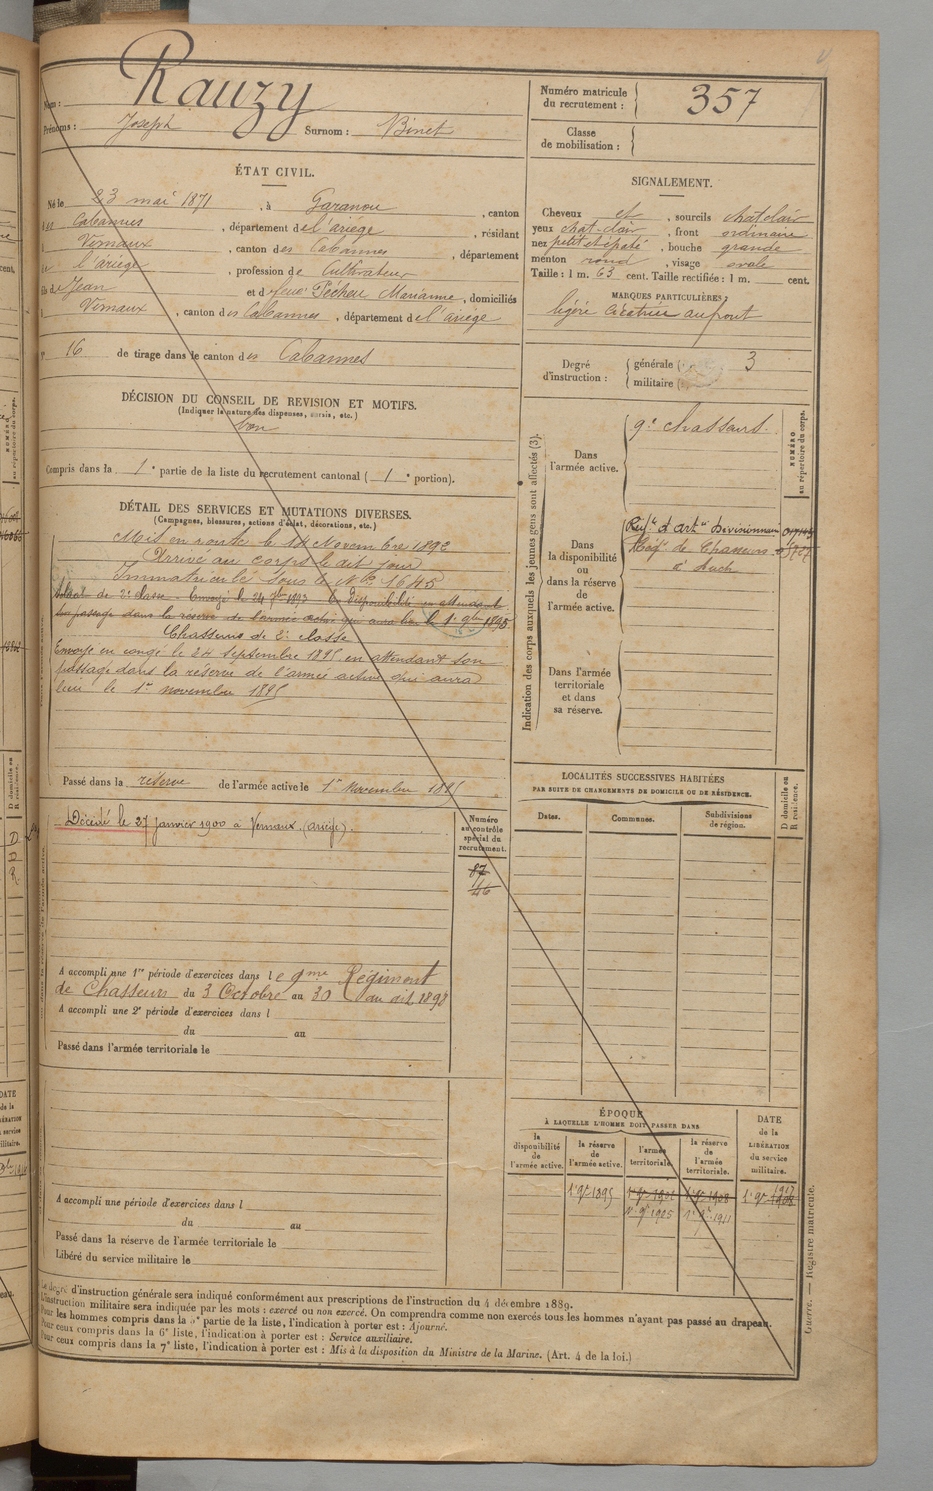 Nom : Rauzy
Prénoms : Joseph Surnom : Binet
Numéro matricule du recrutement : 357
Classe de mobilisation :
ÉTAT CIVIL.
Né le 23 mai 1871, à Garanou, canton
des Cabannes, département de l'ariège, résidant
à Vernaux, canton des Cabannes, département
de l'ariège, profession de Cultivateur
fils de Jean et de feue Pécheu Marianne, domiciliés
à Vernaux, canton des Cabannes, département de l'ariège
N° 16 de tirage dans le canton des Cabannes
SIGNALEMENT.
Cheveux et, sourcils chat clair
yeux chat-clair, front ordinaire
nez petit et épaté, bouche grande
menton rond, visage ovale
Taille : 1 m. 63 cent. Taille rectifiée : 1 m. cent.
MARQUES PARTICULIÈRES :
légère cicatrice au front
Degré d'instruction : générale ( 3
militaire (
DÉCISION DU CONSEIL DE REVISION ET MOTIFS.
(Indiquer la nature des dispenses, sursis, etc.)
bon
Compris dans la 1e partie de la liste du recrutement cantonal ( 1e portion).
DÉTAIL DES SERVICES ET MUTATIONS DIVERSES.
(Campagnes, blessures, actions d'éclat, décorations, etc.)
Mis en route le 14 Novembre 1892
Arrivé au corps le dit jour
Immatriculé sous le No 1645
Soldat de 2e classe - Envoyé le 24 7bre 1893 en Disponibilité en attendant
son passage dans la réserve de l'armée active qui aura lieu le 1er 9bre 1895.
Chasseur de 2e classe
Envoyé en congé le 24 septembre 1895 en attendant son
passage dans la réserve de l'armée active qui aura
lieu le 1er novembre 1895
Passé dans la réserve de l'armée active le 1er Novembre 1895
Décédé le 27 Janvier 1900 à Vernaux (ariège).
Numéro au contrôle spécial du recrutement.
87
46
A accompli une 1re période d'exercices dans le 9me Régiment
de Chasseurs du 3 Octobre au 30 du dit 1898
A accompli une 2e période d'exercices dans l
du au
Passé dans l'armée territoriale le
A accompli une période d'exercices dans l
du au
Passé dans la réserve de l'armée territoriale le
Libéré du service militaire le
Indication des corps auxquels les jeunes gens sont affectés (3).
NUMÉRO au répertoire du corps.
Dans l'armée active.
9e Chasseurs.
Dans la disponibilité ou dans la réserve de l'armée active.
Regt d'Artie Divisionnaire
Régt de Chasseurs
à Auch
Dans l'armée territoriale et dans sa réserve.
LOCALITÉS SUCCESSIVES HABITÉES
PAR SUITE DE CHANGEMENTS DE DOMICILE OU DE RÉSIDENCE.
Dates. Communes. Subdivisions de région. D domicile ou R résidence.
ÉPOQUE
À LAQUELLE L'HOMME DOIT PASSER DANS
la disponibilité de l'armée active. la réserve de l'armée active. l'armée territoriale. la réserve de l'armée territoriale. DATE de la LIBÉRATION du service militaire.
1er 9bre 1895 1er 9bre 1902 1er 9bre 1908 1er 9bre 1917
1er 9bre 1905 1er 9bre 1911
Le degré d'instruction générale sera indiqué conformément aux prescriptions de l'instruction du 4 décembre 1889.
L'instruction militaire sera indiquée par les mots : exercé ou non exercé. On comprendra comme non exercés tous les hommes n'ayant pas passé au drapeau.
Pour les hommes compris dans la 5e partie de la liste, l'indication à porter est : Ajourné.
Pour ceux compris dans la 6e liste, l'indication à porter est : Service auxiliaire.
Pour ceux compris dans la 7e liste, l'indication à porter est : Mis à la disposition du Ministre de la Marine. (Art. 4 de la loi.)
Guerre. — Registre matricule.